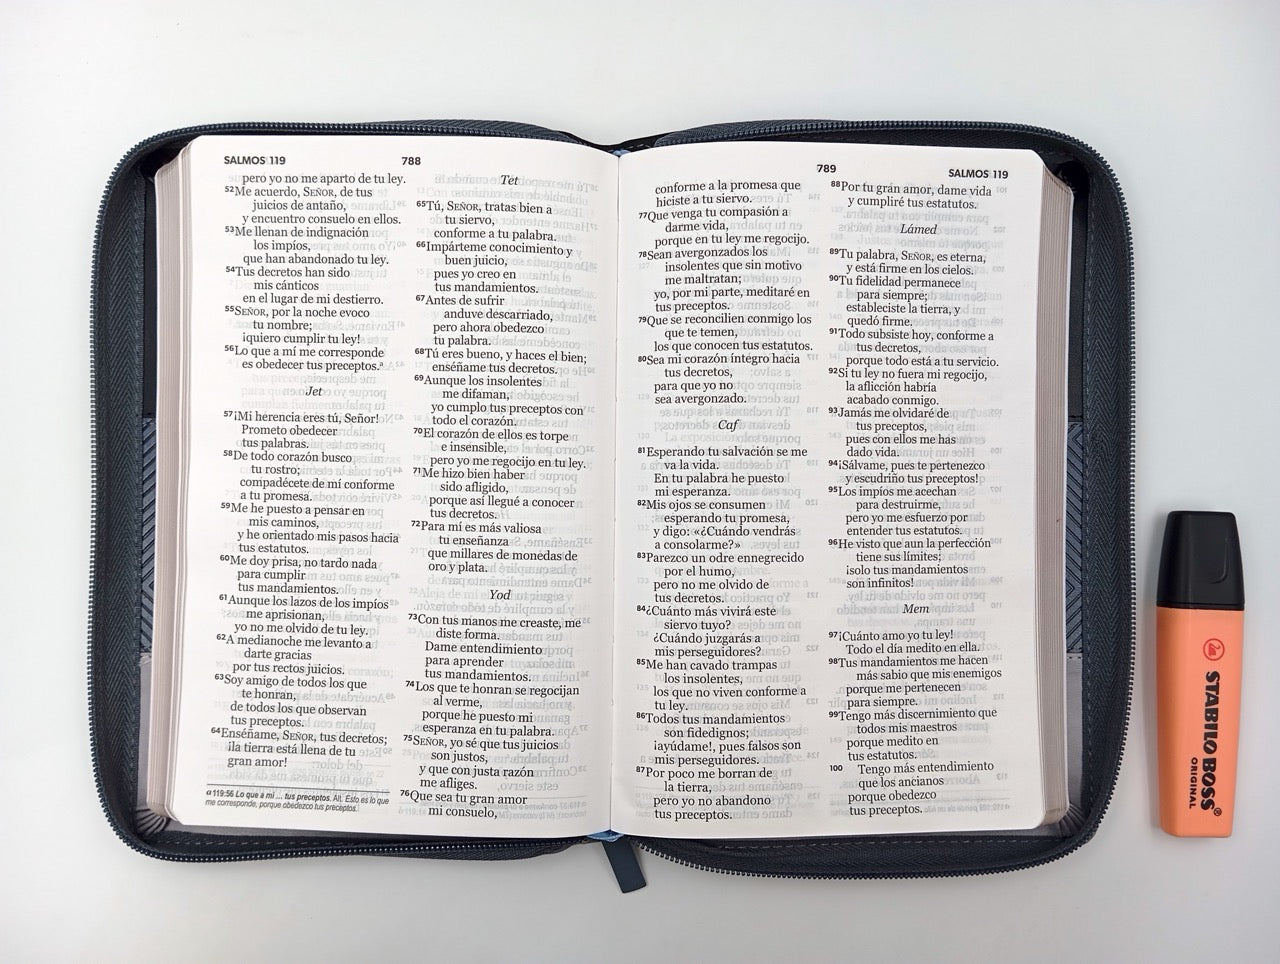 SALMOS 119
788
pero yo no me aparto de tu ley.
52Me acuerdo, SEÑOR, de tus
juicios de antaño,
y encuentro consuelo en ellos.
53Me llenan de indignación
los impíos,
que han abandonado tu ley.
54Tus decretos han sido
mis cánticos
en el lugar de mi destierro.
55SEÑOR, por la noche evoco
tu nombre;
¡quiero cumplir tu ley!
56Lo que a mí me corresponde
es obedecer tus preceptos.a
Jet
57¡Mi herencia eres tú, Señor!
Prometo obedecer
tus palabras.
58De todo corazón busco
tu rostro;
compadécete de mí conforme
a tu promesa.
59Me he puesto a pensar en
mis caminos,
y he orientado mis pasos hacia
tus estatutos.
60Me doy prisa, no tardo nada
para cumplir
tus mandamientos.
61Aunque los lazos de los impíos
me aprisionan,
yo no me olvido de tu ley.
62A medianoche me levanto a
darte gracias
por tus rectos juicios.
63Soy amigo de todos los que
te honran,
de todos los que observan
tus preceptos.
64Enséñame, SEÑOR, tus decretos;
¡la tierra está llena de tu
gran amor!
a 119:56 Lo que a mí ... tus preceptos. Alt. Esto es lo que
me corresponde, porque obedezco tus preceptos.
Tet
65Tú, SEÑOR, tratas bien a
tu siervo,
conforme a tu palabra.
66Impárteme conocimiento y
buen juicio,
pues yo creo en
tus mandamientos.
67Antes de sufrir
anduve descarriado,
pero ahora obedezco
tu palabra.
68Tú eres bueno, y haces el bien;
enséñame tus decretos.
69Aunque los insolentes
me difaman,
yo cumplo tus preceptos con
todo el corazón.
70El corazón de ellos es torpe
e insensible,
pero yo me regocijo en tu ley.
71Me hizo bien haber
sido afligido,
porque así llegué a conocer
tus decretos.
72Para mí es más valiosa
tu enseñanza
que millares de monedas de
oro y plata.
Yod
73Con tus manos me creaste, me
diste forma.
Dame entendimiento
para aprender
tus mandamientos.
74Los que te honran se regocijan
al verme,
porque he puesto mi
esperanza en tu palabra.
75SEÑOR, yo sé que tus juicios
son justos,
y que con justa razón
me afliges.
76Que sea tu gran amor
mi consuelo,
789
SALMOS 119
conforme a la promesa que
hiciste a tu siervo.
77Que venga tu compasión a
darme vida,
porque en tu ley me regocijo.
78Sean avergonzados los
insolentes que sin motivo
me maltratan;
yo, por mi parte, meditaré en
tus preceptos.
79Que se reconcilien conmigo los
que te temen,
los que conocen tus estatutos.
80Sea mi corazón íntegro hacia
tus decretos,
para que yo no
sea avergonzado.
Caf
81Esperando tu salvación se me
va la vida.
En tu palabra he puesto
mi esperanza.
82Mis ojos se consumen
esperando tu promesa,
y digo: «¿Cuándo vendrás
a consolarme?»
83Parezco un odre ennegrecido
por el humo,
pero no me olvido de
tus decretos.
84¿Cuánto más vivirá este
siervo tuyo?
¿Cuándo juzgarás a
mis perseguidores?
85Me han cavado trampas
los insolentes,
los que no viven conforme a
tu ley.
86Todos tus mandamientos
son fidedignos;
¡ayúdame!, pues falsos son
mis perseguidores.
87Por poco me borran de
la tierra,
pero yo no abandono
tus preceptos.
88Por tu gran amor, dame vida
y cumpliré tus estatutos.
Lámed
89Tu palabra, SEÑOR, es eterna,
y está firme en los cielos.
90Tu fidelidad permanece
para siempre;
estableciste la tierra, y
quedó firme.
91Todo subsiste hoy, conforme a
tus decretos,
porque todo está a tu servicio.
92Si tu ley no fuera mi regocijo,
la aflicción habría
acabado conmigo.
93Jamás me olvidaré de
tus preceptos,
pues con ellos me has
dado vida.
94¡Sálvame, pues te pertenezco
y escudriño tus preceptos!
95Los impíos me acechan
para destruirme,
pero yo me esfuerzo por
entender tus estatutos.
96He visto que aun la perfección
tiene sus límites;
¡solo tus mandamientos
son infinitos!
Mem
97¡Cuánto amo yo tu ley!
Todo el día medito en ella.
98Tus mandamientos me hacen
más sabio que mis enemigos
porque me pertenecen
para siempre.
99Tengo más discernimiento que
todos mis maestros
porque medito en
tus estatutos.
100 Tengo más entendimiento
que los ancianos
porque obedezco
tus preceptos.
STABILO BOSS
ORIGINAL